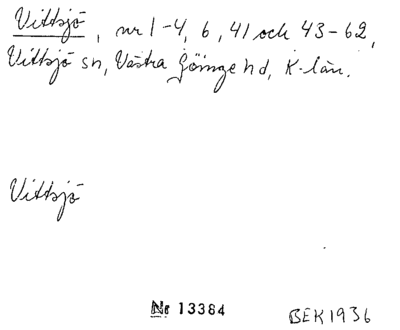 Vittsjö, nr 1-4, 6, 41 och 43-62,
Vittsjö sn, Västra Göinge hd, K-län.
Vittsjö
Nr 13384
BEK1936